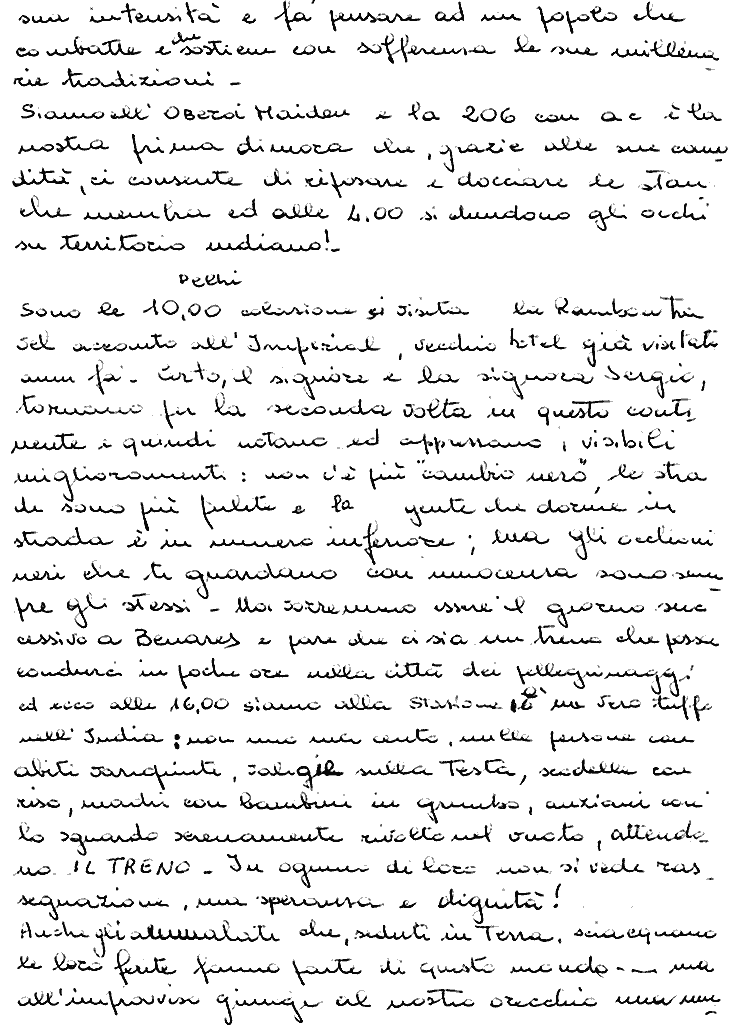 sua intensità e fa' pensare ad un popolo che
combatte e che sostiene con sofferenza le sue millena_
rie tradizioni -
Siamo all' Oberoi Maiden e la 206 con a c è la
nostra prima dimora che, grazie alle sue como_
dità, ci consente di riposare e docciare le stan_
che membra ed alle 4.00 si chiudono gli occhi
su territorio indiano! -
Delhi
Sono le 10,00 colazione si visita la
ed acconto all' Imperial, vecchio hotel già visitato
anni fa - Certo, il signore e la signora Sergio,
tornano per la seconda volta in questo conti_
nente e quindi notano ed apprezzano i visibili
miglioramenti: non c'è più "cambio nero", le stra
de sono più pulite e la gente che dorme in
strada è in numero inferiore; ma gli occhioni
neri che ti guardano con innocenza sono sem_
pre gli stessi - Noi vorremmo essere il giorno suc_
cessivo a Benares e pare che ci sia un treno che possa
condurci in poche ore nella città dei pellegrinaggi
ed ecco alle 16,00 siamo alla stazione, è un vero tuffo
nell' India: non uno ma cento, mille persone con
abiti variopinti, valigie sulla Testa, scodelle con
riso, madri con bambini in grembo, anziani con
lo sguardo serenamente rivolto nel vuoto, attendo_
no IL TRENO - In ognuno di loro non si vede ras_
segnazione, ma speranza e dignità!
Anche gli ammalati che, seduti in Terra, sciacquano
le loro ferite fanno parte di questo mondo - - - ma
all'improvviso giunge al nostro orecchio una mu_